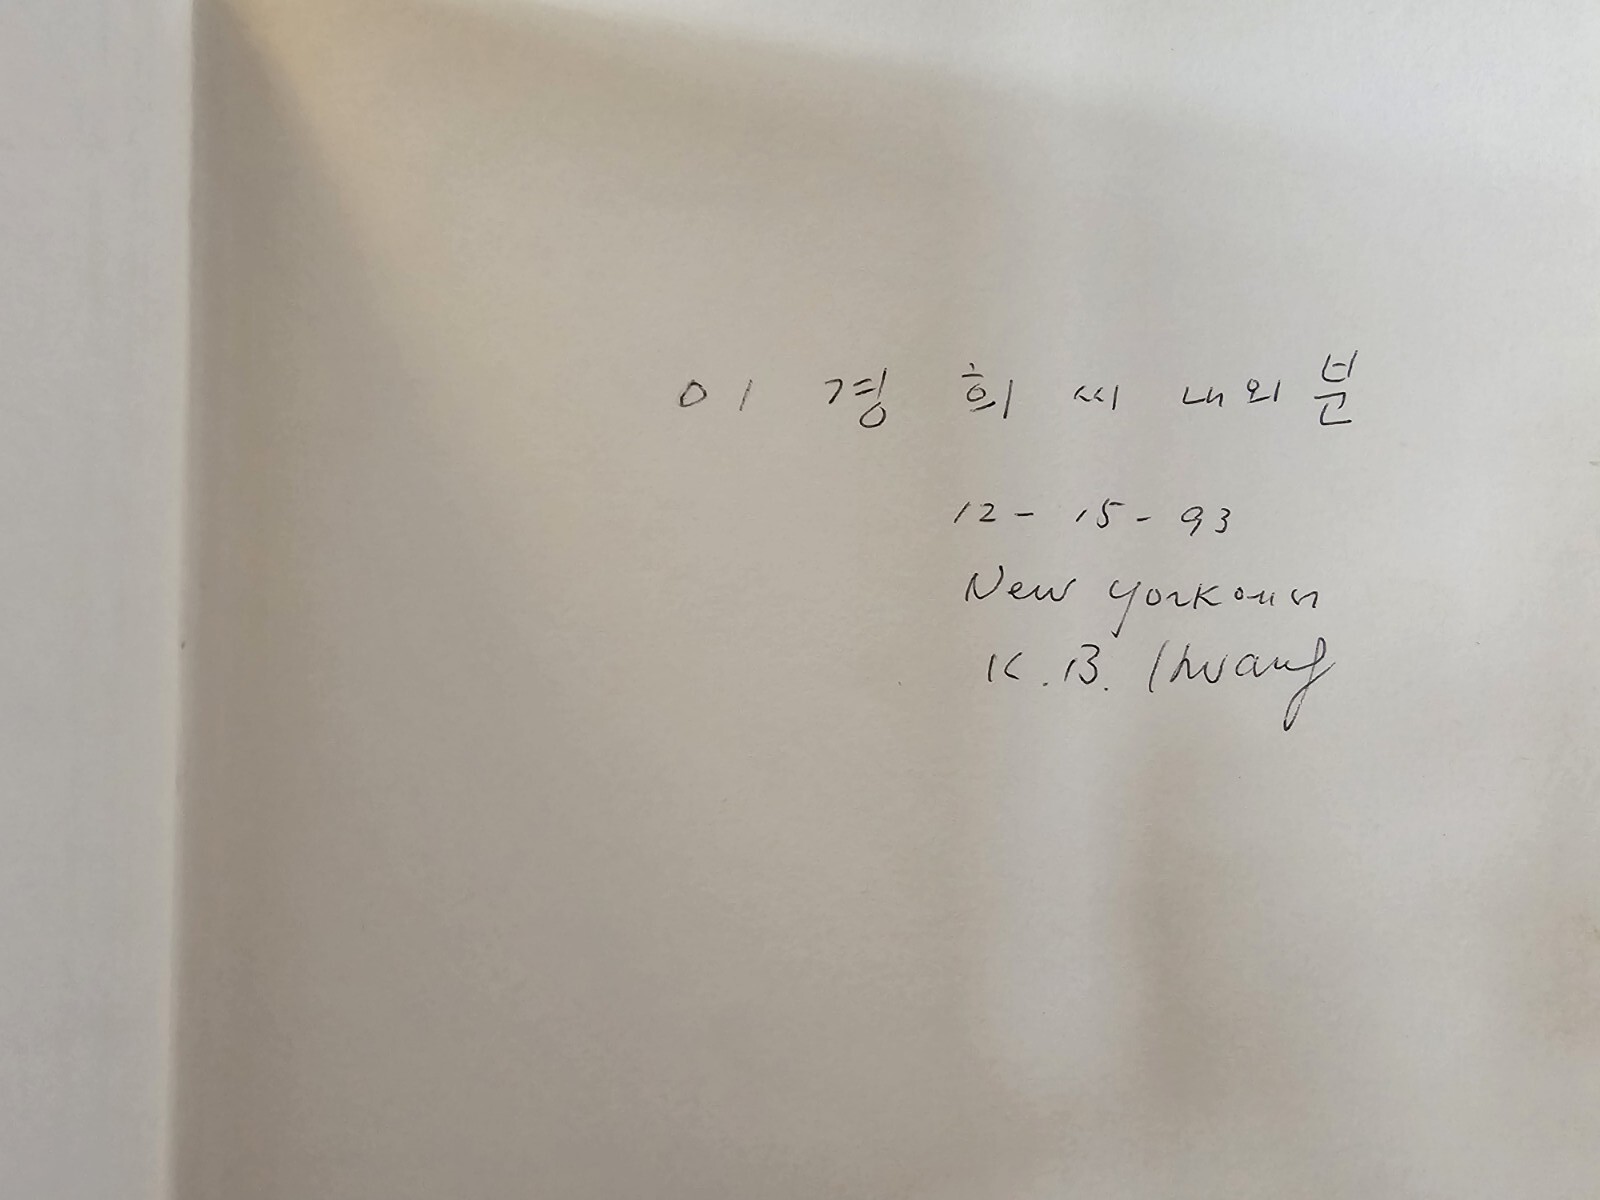 이 경 희 씨 내외분
12 - 15 - 93
New York에서
K. B. Hwang